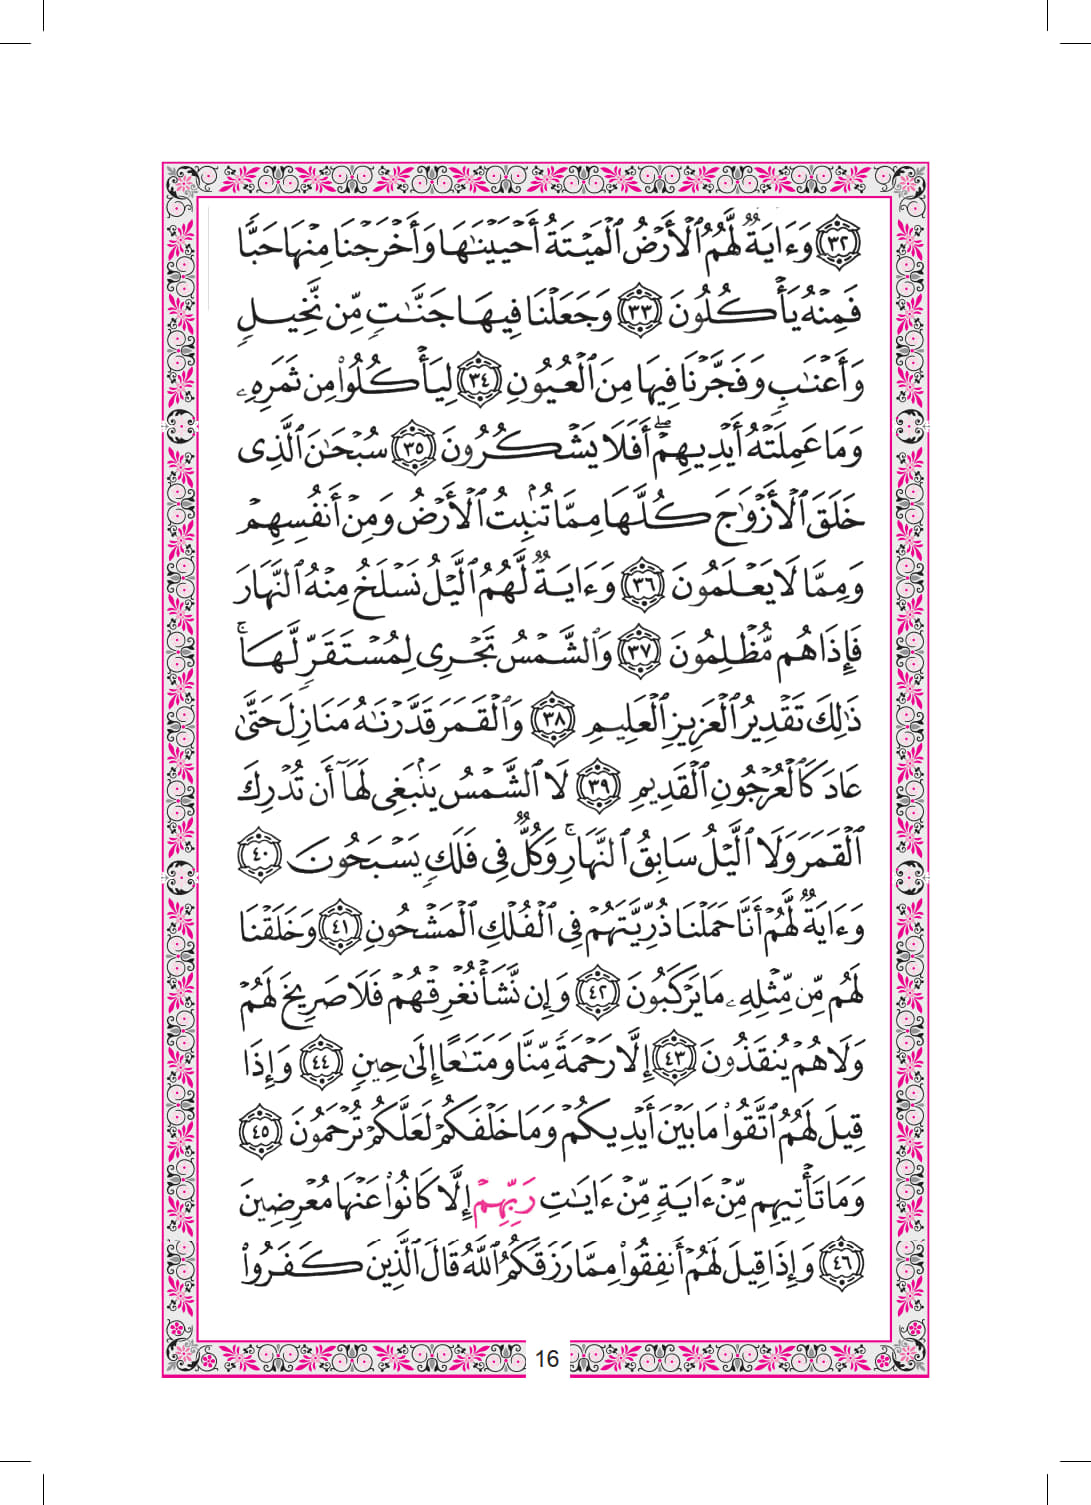 ﴿٣٢﴾ وَءَايَةٌ لَّهُمُ ٱلْأَرْضُ ٱلْمَيْتَةُ أَحْيَيْنَـٰهَا وَأَخْرَجْنَا مِنْهَا حَبًّا
فَمِنْهُ يَأْكُلُونَ ﴿٣٣﴾ وَجَعَلْنَا فِيهَا جَنَّـٰتٍ مِّن نَّخِيلٍ
وَأَعْنَـٰبٍ وَفَجَّرْنَا فِيهَا مِنَ ٱلْعُيُونِ ﴿٣٤﴾ لِيَأْكُلُوا۟ مِن ثَمَرِهِۦ
وَمَا عَمِلَتْهُ أَيْدِيهِمْ ۖ أَفَلَا يَشْكُرُونَ ﴿٣٥﴾ سُبْحَـٰنَ ٱلَّذِى
خَلَقَ ٱلْأَزْوَٰجَ كُلَّهَا مِمَّا تُنۢبِتُ ٱلْأَرْضُ وَمِنْ أَنفُسِهِمْ
وَمِمَّا لَا يَعْلَمُونَ ﴿٣٦﴾ وَءَايَةٌ لَّهُمُ ٱلَّيْلُ نَسْلَخُ مِنْهُ ٱلنَّهَارَ
فَإِذَا هُم مُّظْلِمُونَ ﴿٣٧﴾ وَٱلشَّمْسُ تَجْرِى لِمُسْتَقَرٍّ لَّهَا ۚ
ذَٰلِكَ تَقْدِيرُ ٱلْعَزِيزِ ٱلْعَلِيمِ ﴿٣٨﴾ وَٱلْقَمَرَ قَدَّرْنَـٰهُ مَنَازِلَ حَتَّىٰ
عَادَ كَٱلْعُرْجُونِ ٱلْقَدِيمِ ﴿٣٩﴾ لَا ٱلشَّمْسُ يَنۢبَغِى لَهَآ أَن تُدْرِكَ
ٱلْقَمَرَ وَلَا ٱلَّيْلُ سَابِقُ ٱلنَّهَارِ ۚ وَكُلٌّ فِى فَلَكٍ يَسْبَحُونَ ﴿٤٠﴾
وَءَايَةٌ لَّهُمْ أَنَّا حَمَلْنَا ذُرِّيَّتَهُمْ فِى ٱلْفُلْكِ ٱلْمَشْحُونِ ﴿٤١﴾ وَخَلَقْنَا
لَهُم مِّن مِّثْلِهِۦ مَا يَرْكَبُونَ ﴿٤٢﴾ وَإِن نَّشَأْ نُغْرِقْهُمْ فَلَا صَرِيخَ لَهُمْ
وَلَا هُمْ يُنقَذُونَ ﴿٤٣﴾ إِلَّا رَحْمَةً مِّنَّا وَمَتَـٰعًا إِلَىٰ حِينٍ ﴿٤٤﴾ وَإِذَا
قِيلَ لَهُمُ ٱتَّقُوا۟ مَا بَيْنَ أَيْدِيكُمْ وَمَا خَلْفَكُمْ لَعَلَّكُمْ تُرْحَمُونَ ﴿٤٥﴾
وَمَا تَأْتِيهِم مِّنْ ءَايَةٍ مِّنْ ءَايَـٰتِ رَبِّهِمْ إِلَّا كَانُوا۟ عَنْهَا مُعْرِضِينَ
﴿٤٦﴾ وَإِذَا قِيلَ لَهُمْ أَنفِقُوا۟ مِمَّا رَزَقَكُمُ ٱللَّهُ قَالَ ٱلَّذِينَ كَفَرُوا۟
16